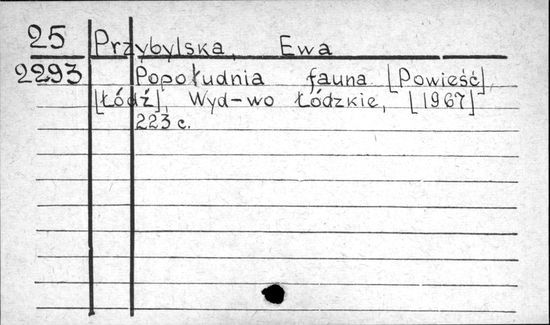 25 Przybylska, Ewa
2293 Popołudnia fauna [Powieść],
[Łódź], Wyd-wo Łódzkie, [1967]
223 с.